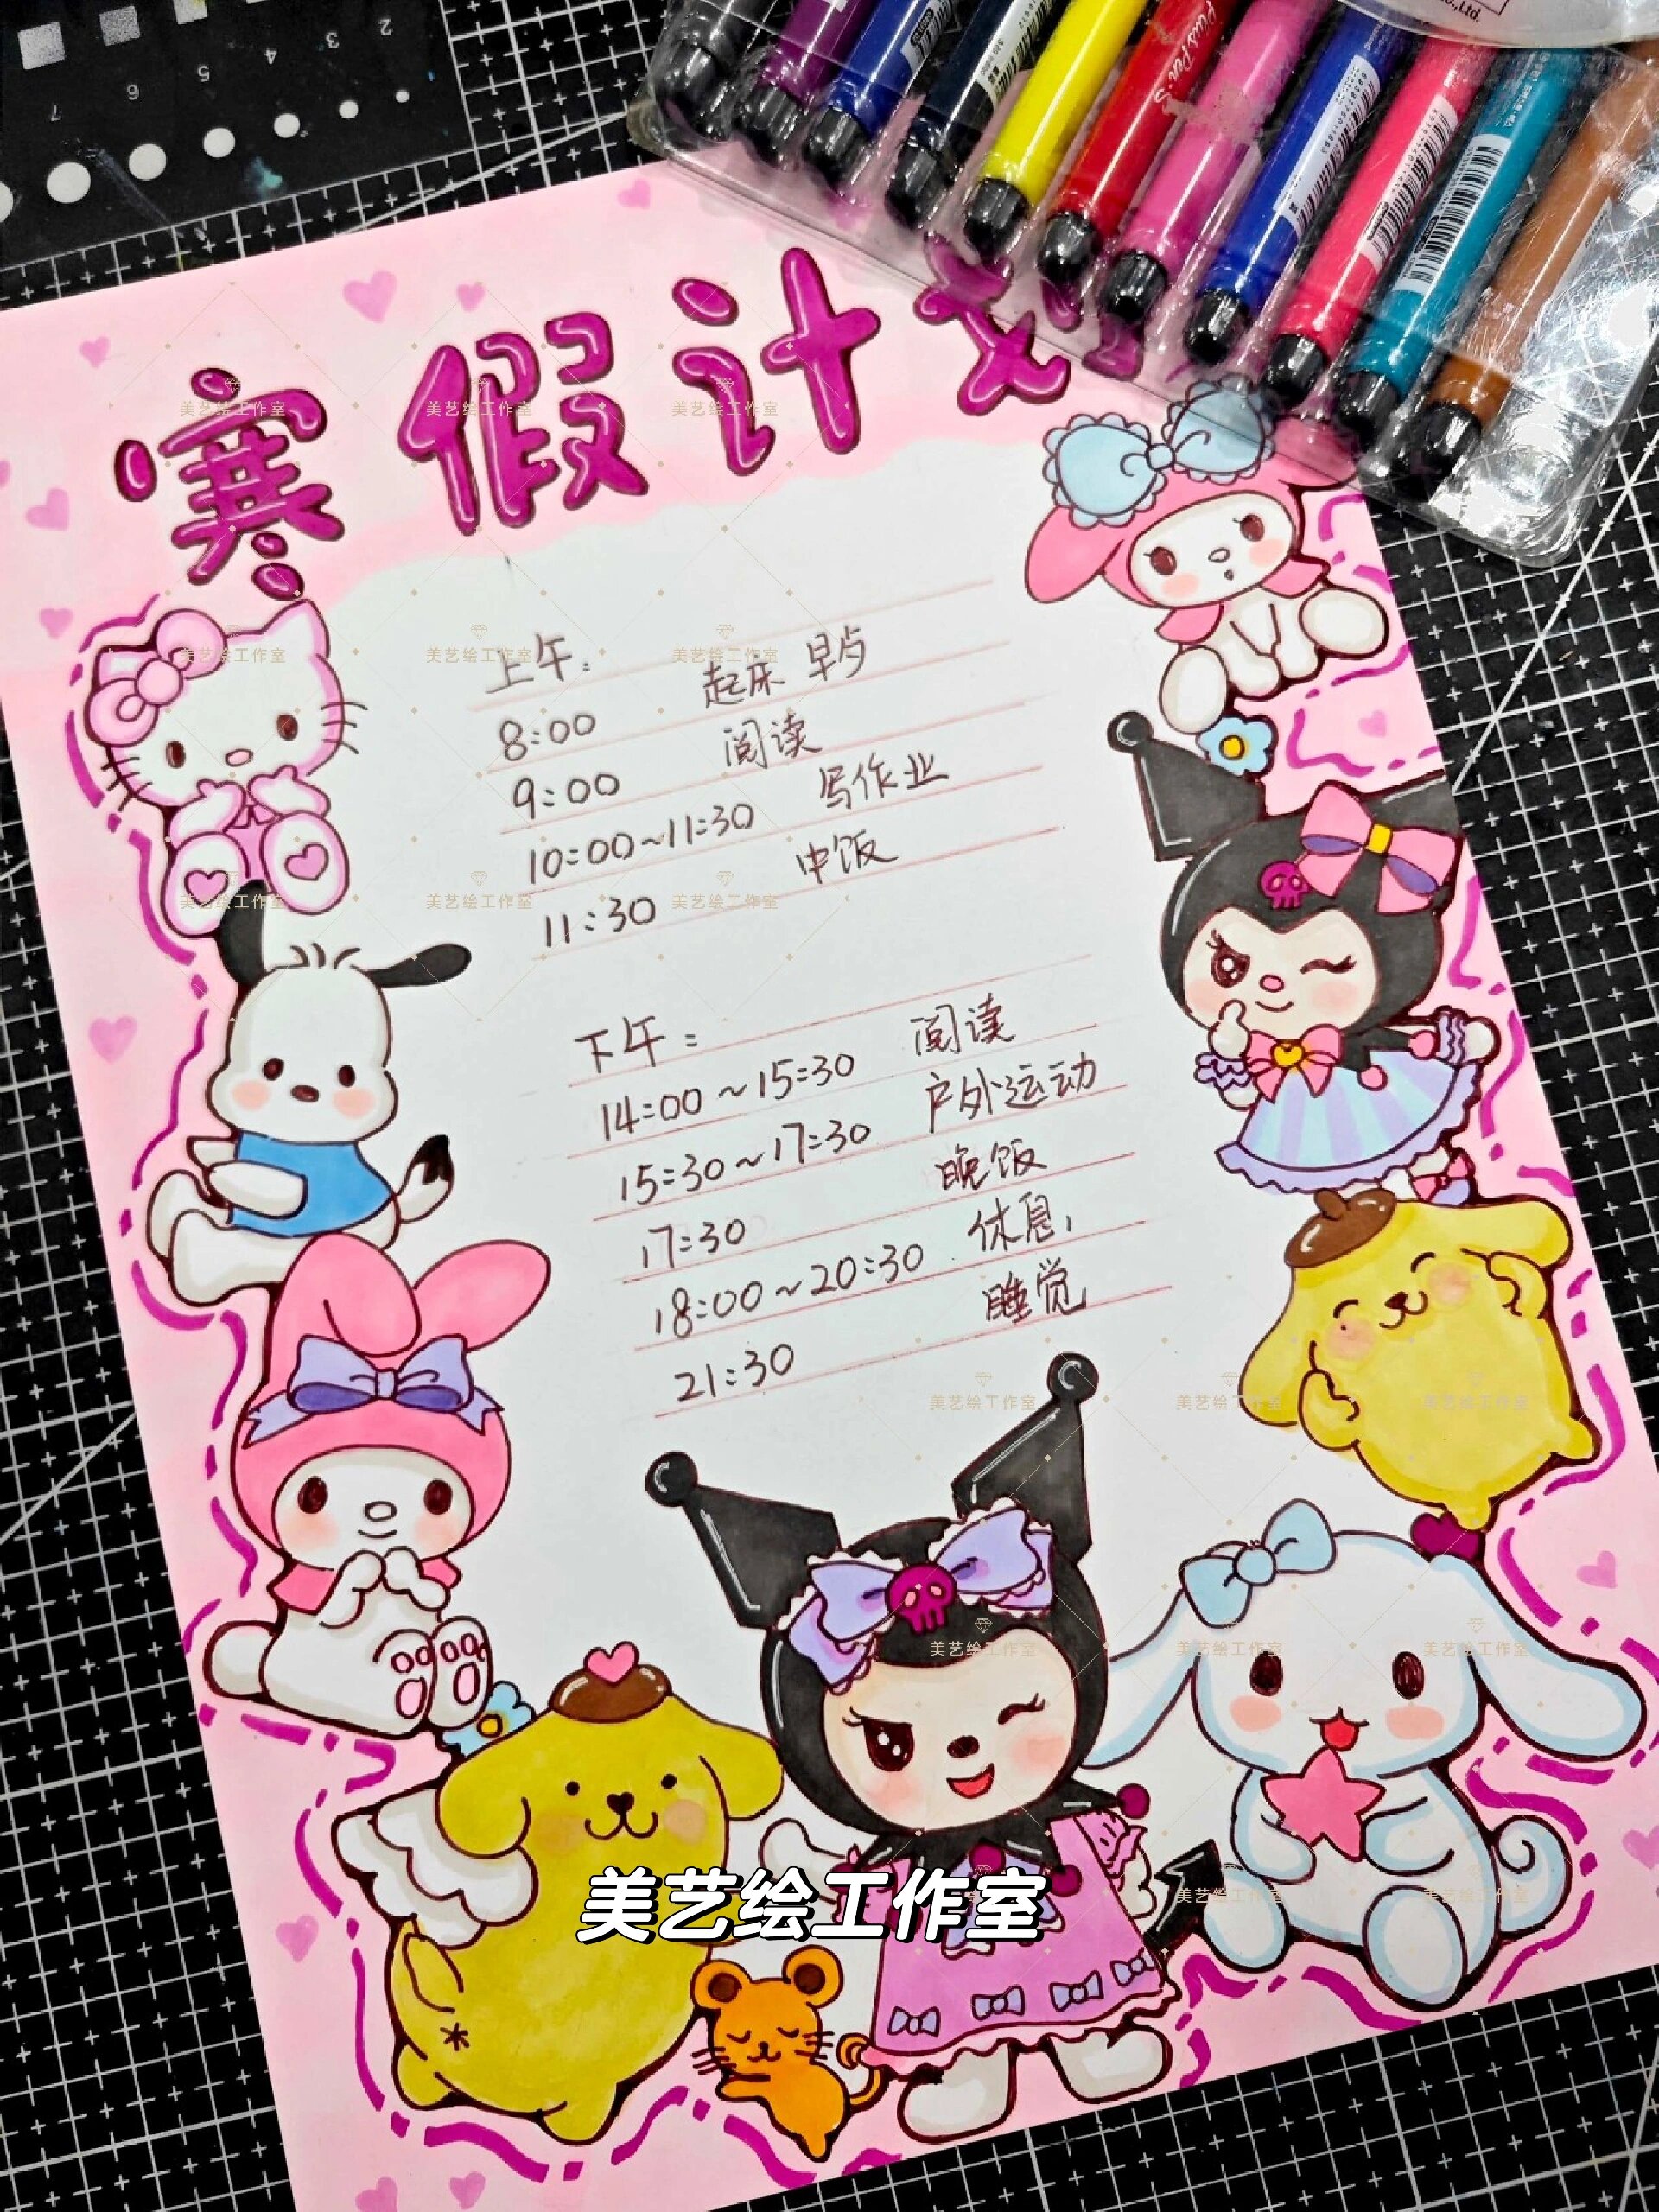 寒假计划
上午：
8:00 起床 早点
9:00 阅读
10:00~11:30 写作业
11:30 中饭
下午：
14:00~15:30 阅读
15:30~17:30 户外运动
17:30 晚饭
18:00~20:30 休息,
21:30 睡觉
美艺绘工作室